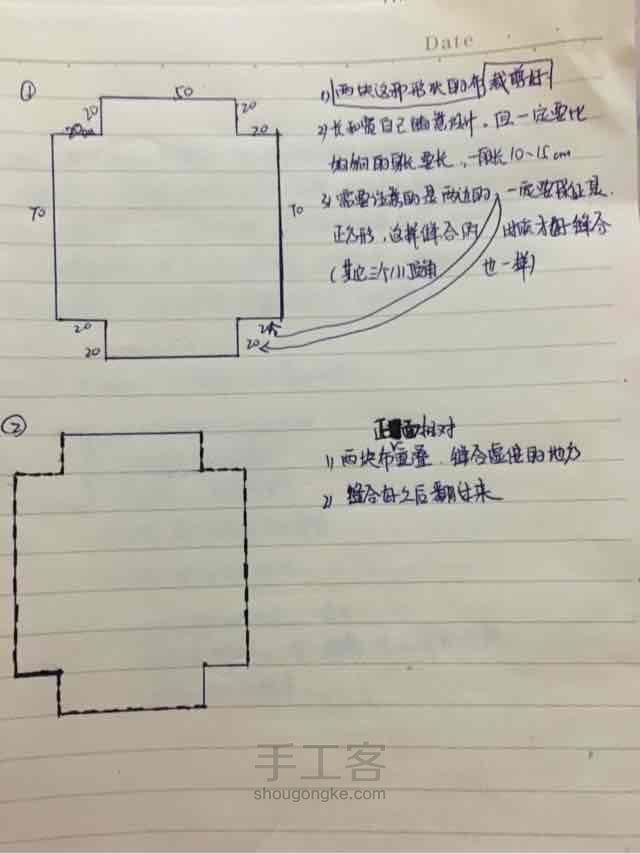 Date
①
50
20
20
20cm
20
70
70
20
20
20
20
1) 两块这那形状的布裁剪好
2) 长和宽自己随意设计，但一定要比
狗狗的身长要长，一般长10~15cm
3) 需要注意的是两边的，一定要保证是
正方形，这样缝合的时候才好缝合
(其它三个小顶角也一样)
②
正面相对
1) 两块布重叠，缝合虚线的地方
2) 缝合好之后翻过来
手工客
shougongke.com